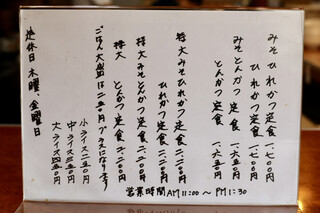 みそひれかつ定食 一、七〇〇円
ひれかつ定食 一、七〇〇円
みそとんかつ定食 一、六五〇円
とんかつ定食 一、六五〇円
特大みそひれかつ定食 二、二〇〇円
ひれかつ定食 二、二〇〇円
特大みそとんかつ定食 二、二〇〇円
特大とんかつ定食 二、二〇〇円
ごはん大盛は二五〇円プラスになります
小ライス 二五〇円
中ライス 三五〇円
大ライス 四五〇円
定休日 木曜、金曜日
営業時間 AM 11:00 ~ PM 1:30